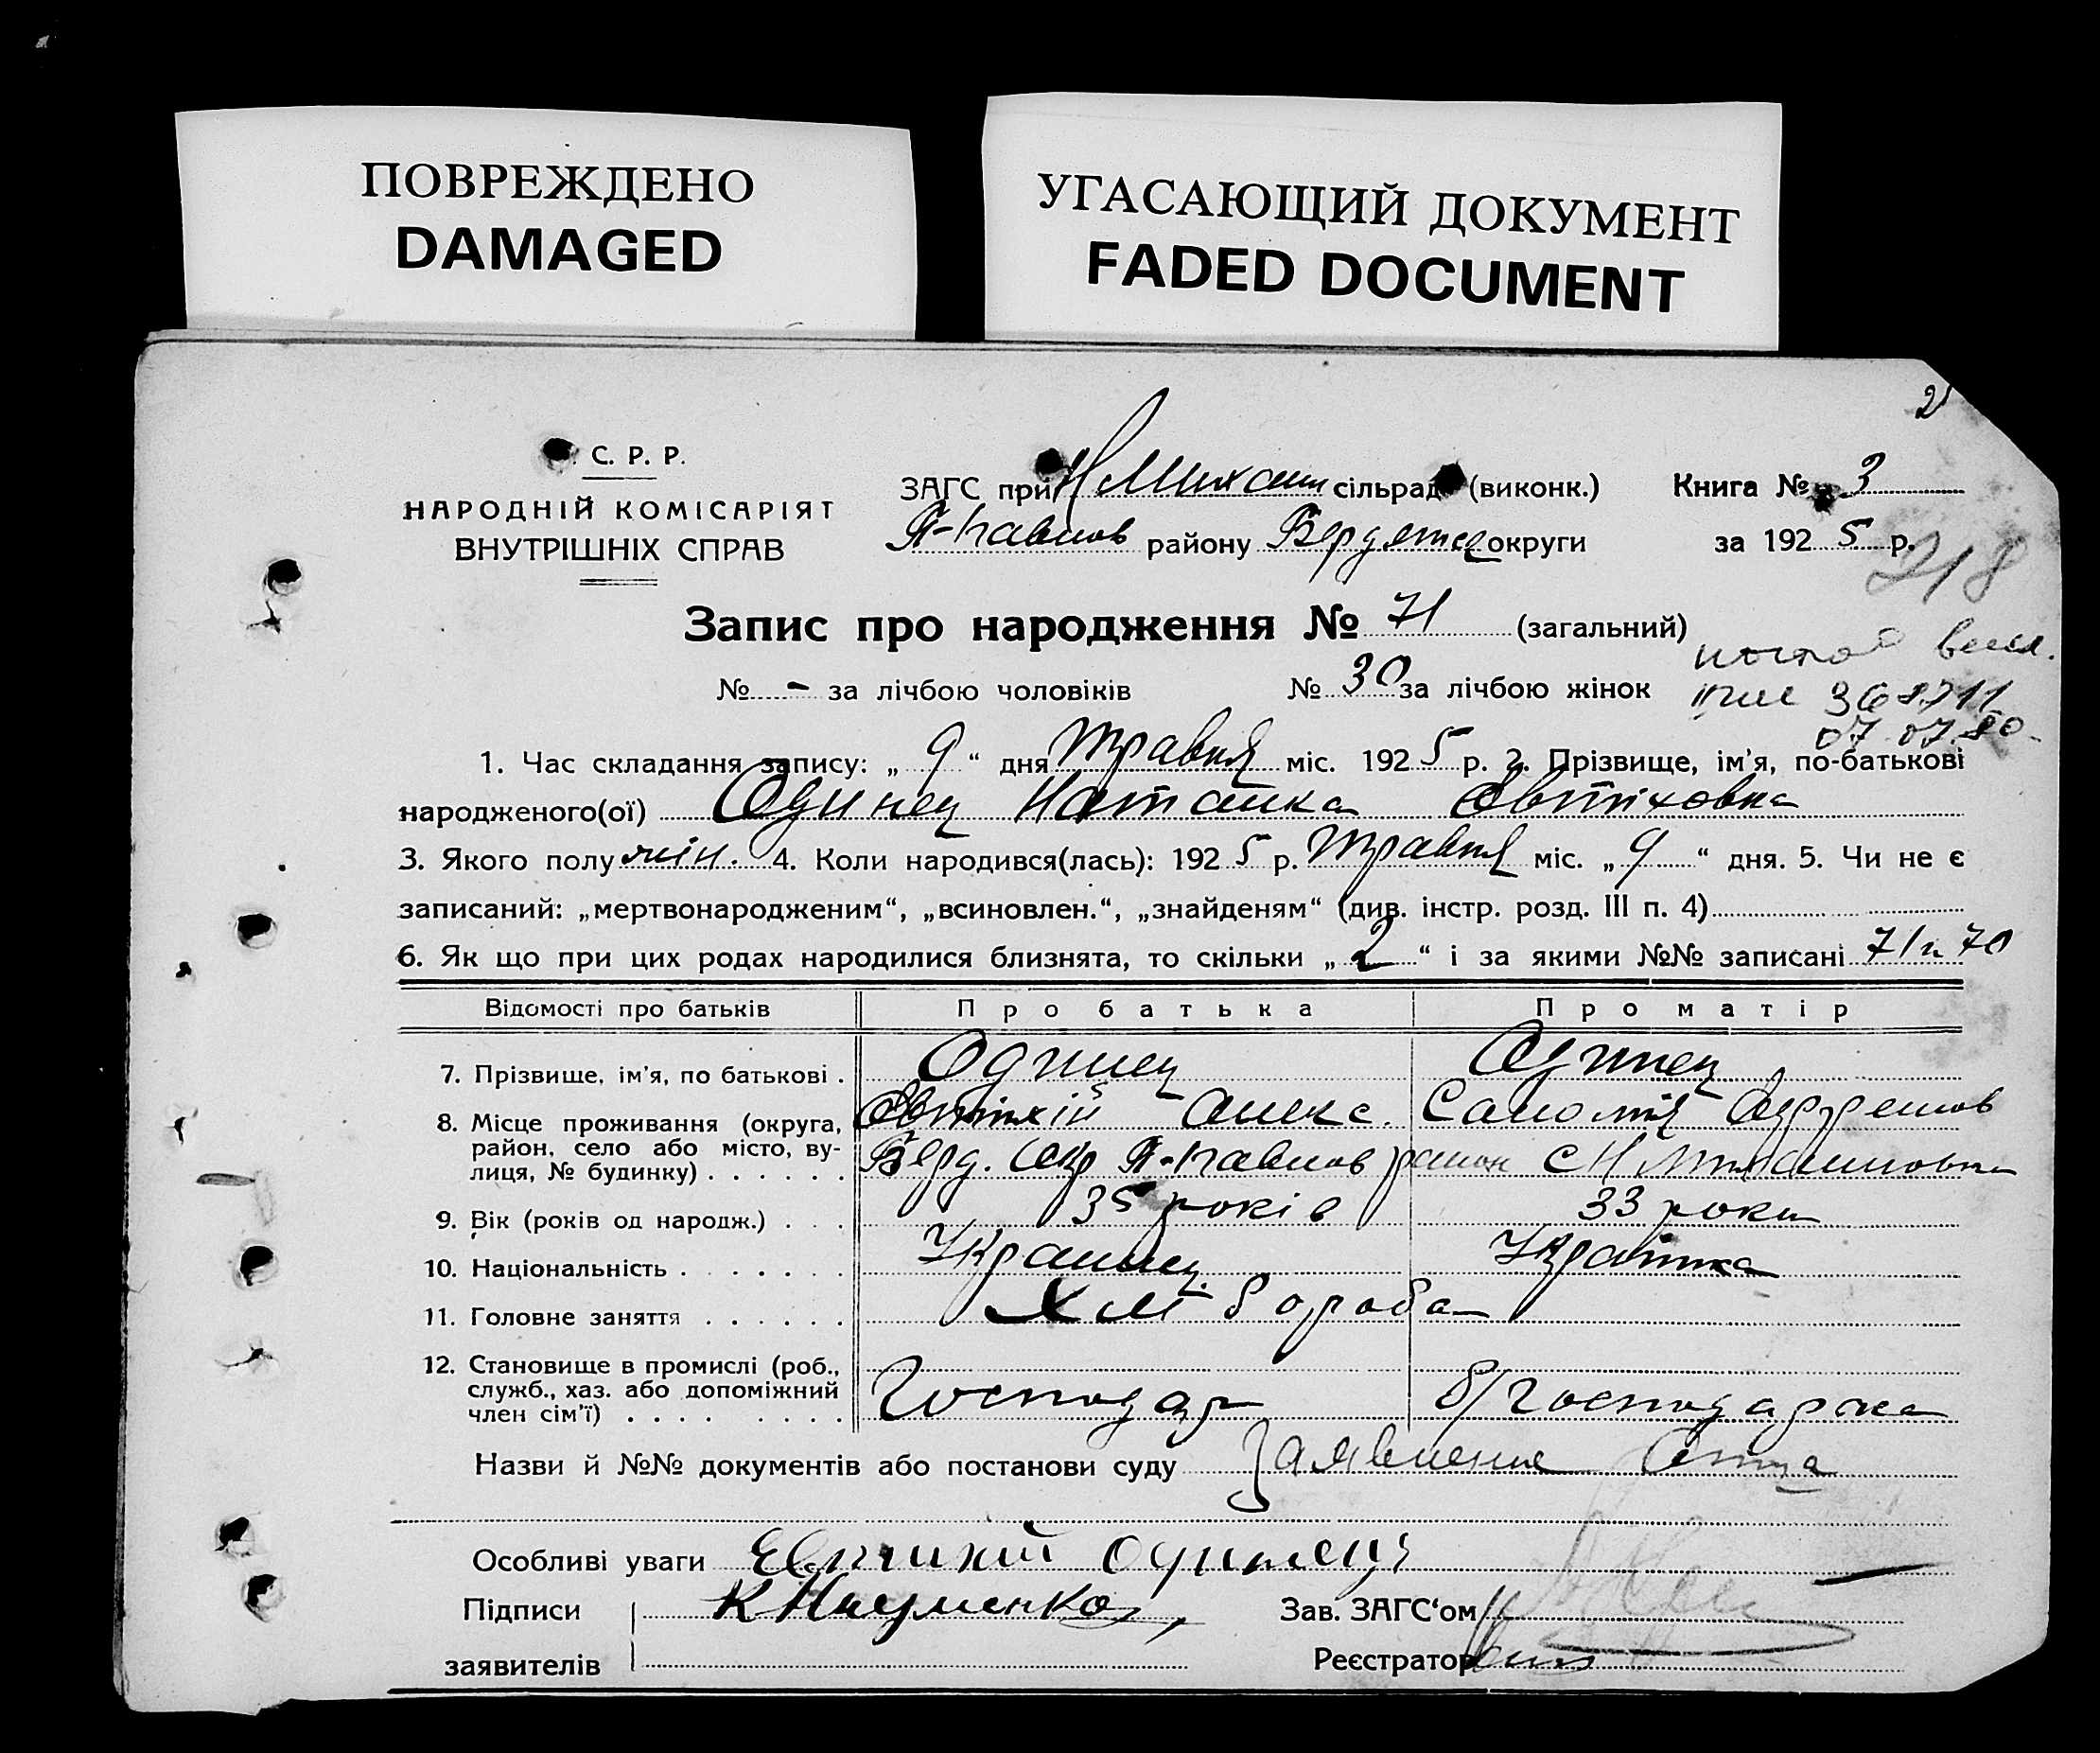 ПОВРЕЖДЕНО
DAMAGED
УГАСАЮЩИЙ ДОКУМЕНТ
FADED DOCUMENT
2
С. Р. Р.
НАРОДНІЙ КОМІСАРІЯТ
ВНУТРІШНІХ СПРАВ
ЗАГС при Н Михайл сільрад (виконк.)
районУ округи
Книга № 3
за 192 5 р.
218
Запис про народження № 71 (загальний)
№ - за лічбою чоловіків № 30 за лічбою жінок
368711
07.07.80
1. Час складання запису: „ 9 “ дня травня міс. 192 5 р. 2. Прізвище, ім'я, по-батькові
народженого(ої) Одинец Наталка Овтіховна
3. Якого полу жін. 4. Коли народився(лась): 192 5 р. травня міс. „ 9 “ дня. 5. Чи не є
записаний: „мертвонародженим“, „всиновлен.“, „знайденям“ (див. інстр. розд. III п. 4)
6. Як що при цих родах народилися близнята, то скільки „ 2 “ і за якими №№ записані 71 и 70
Відомості про батьків Про батька Про матір
7. Прізвище, ім'я, по батькові . Одинец Одинец
Овтіхій Алекс. Саломія
8. Місце проживання (округа,
район, село або місто, ву-
лиця, № будинку) . . . . . . Берд. окр район с Н Михайловка
9. Вік (років од народж.) . . . 35 років 33 роки
10. Національність . . . . . . . Украинец Українка
11. Головне заняття . . . . . . Хліборобa
12. Становище в промислі (роб.,
служб., хаз. або допоміжний
член сім'ї) . . . . . . . . . Господар д/господарка
Назви й №№ документів або постанови суду Заявление Отца
Особливі уваги Евтихій Одинець
Підписи К Науменко
заявителів
Зав. ЗАГС‘ом
Реєстратор